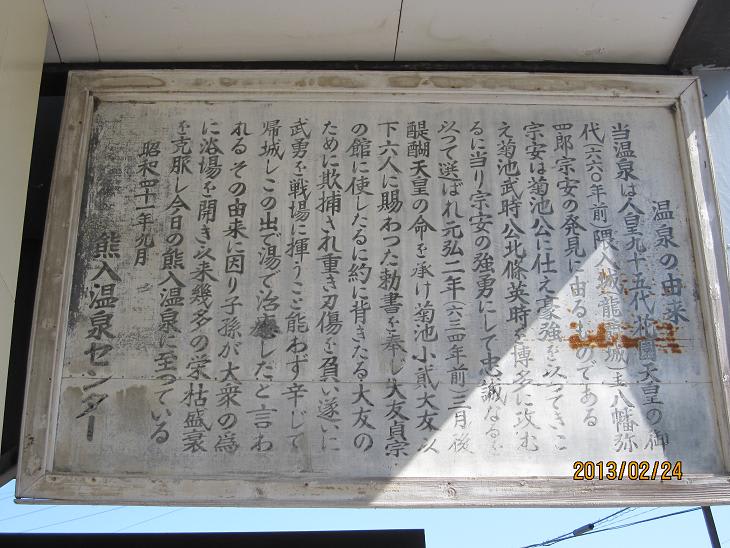 温泉の由来
当温泉は人皇九十五代花園天皇の御
代(六六〇年前)隈入城(龍首城)主八幡弥
四郎宗安の発見に由るものである
宗安は菊池公に仕え豪強を以つてきこ
え菊池武時公北條英時を博多に攻む
るに当り宗安の強勇にして忠誠なるを
以つて選ばれ元弘二年(六三四年前)三月後
醍醐天皇の命を承け菊池小貮大友以
下六人に賜わつた勅書を奉し大友貞宗
の館に使したるに約に背きたる大友の
ために欺捕され重き刃傷を負い遂に
武勇を戦場に揮うこと能わず辛じて
帰城しこの出で湯で治癒したと言わ
れるその由来に因り子孫が大衆の為
に浴場を開き以来幾多の栄枯盛衰
を克服し今日の熊入温泉に至つている
昭和四十一年九月
熊入温泉センター
2013/02/24